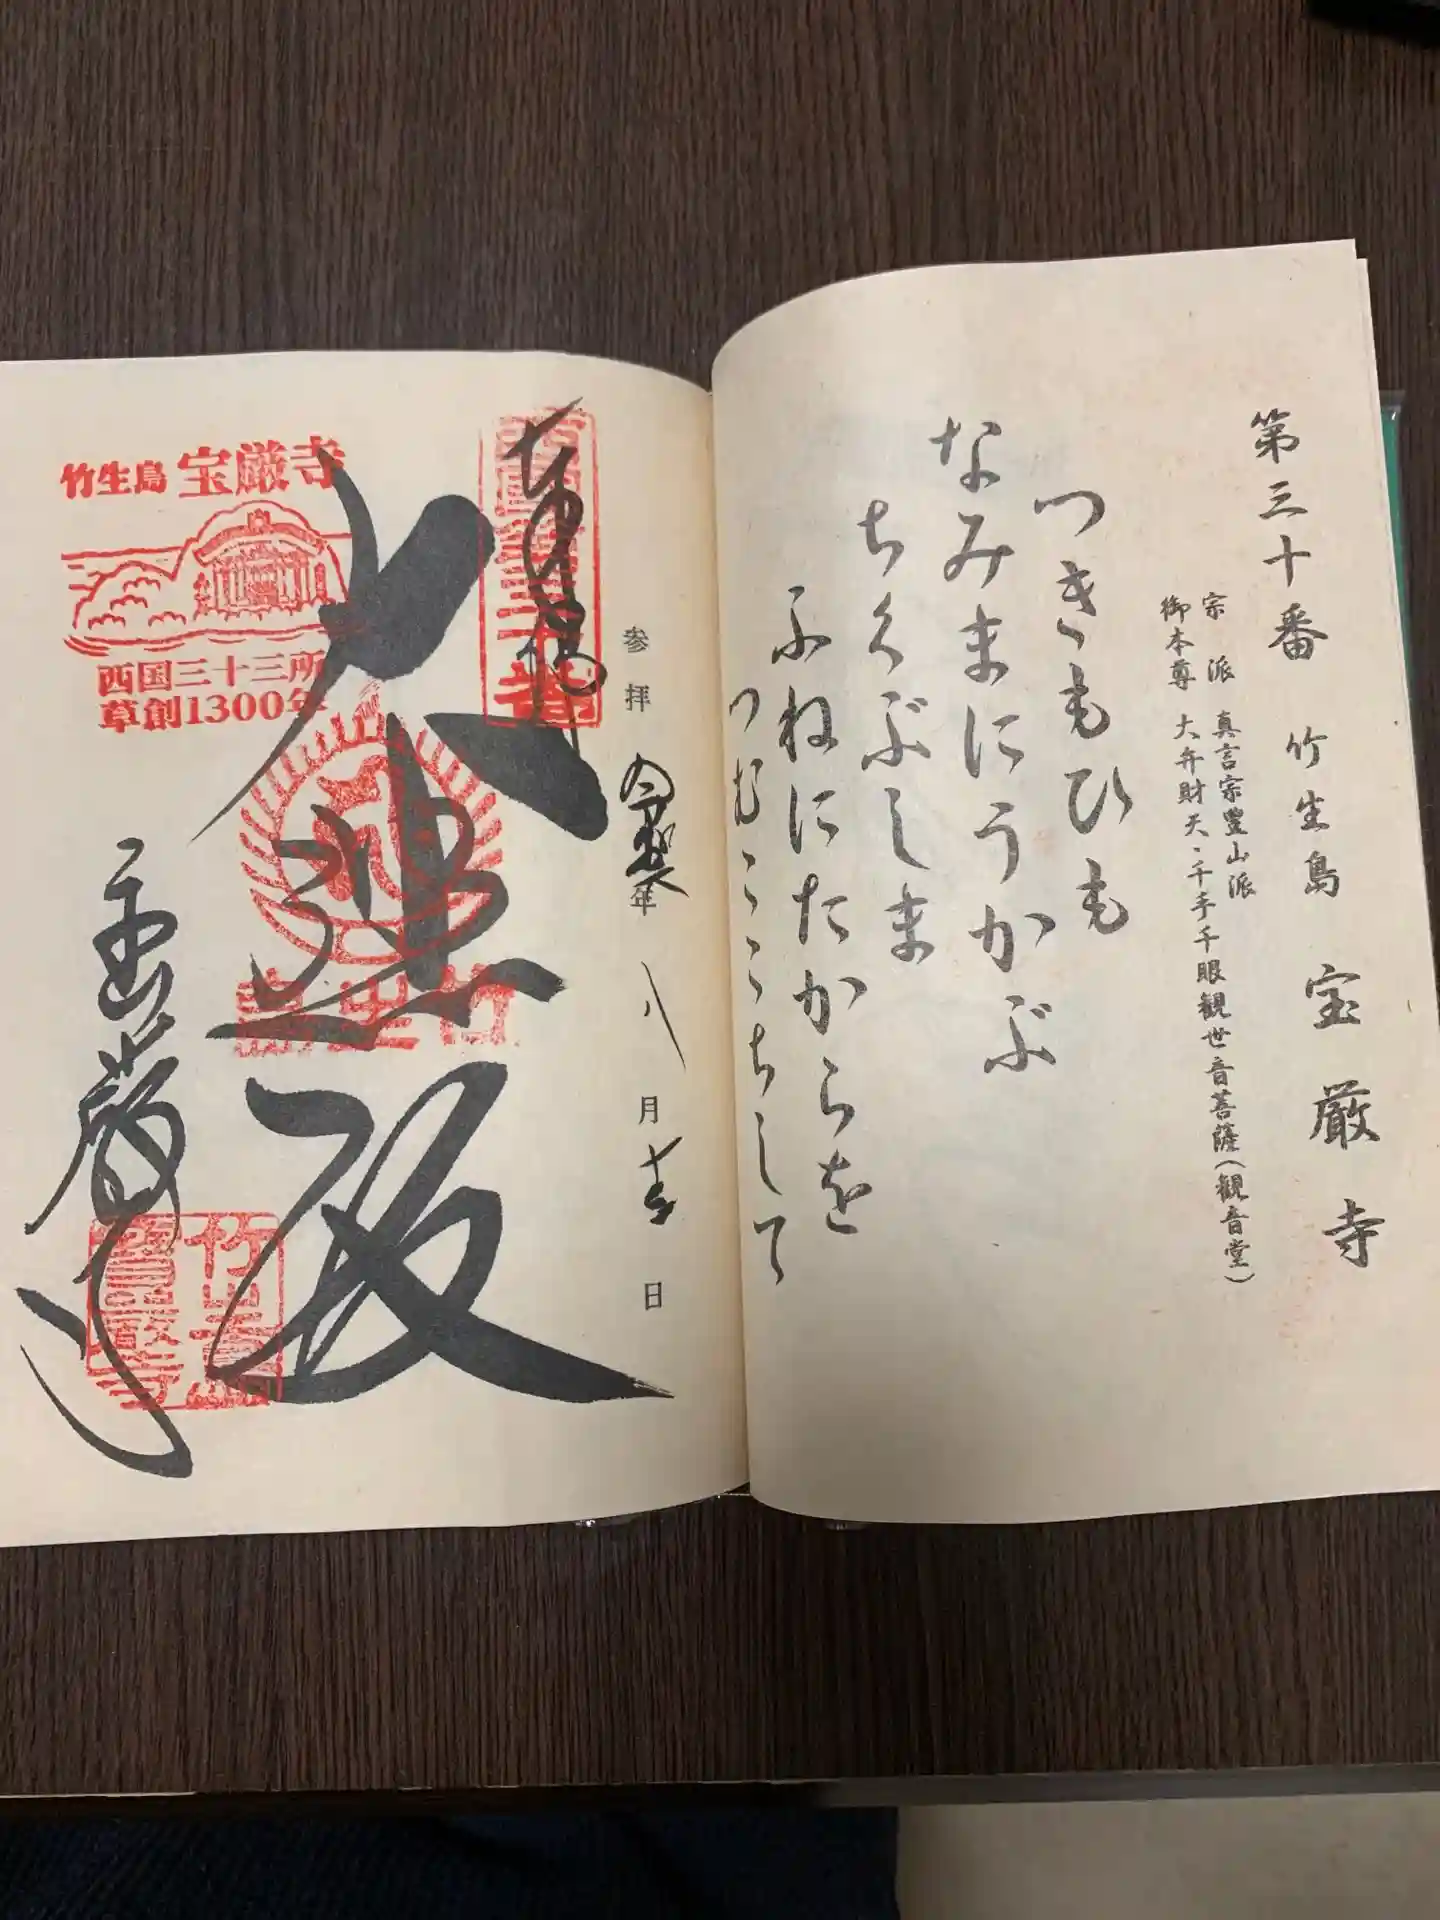 第三十番 竹生島 宝厳寺
宗派 真言宗豊山派
御本尊 大弁財天・千手千眼観世音菩薩(観音堂)
つきもひも
なみまにうかぶ
ちくぶしま
ふねにたからを
つむここちして
参拝 年 八月 日
奉拝
大悲殿
宝厳寺
竹生島 宝厳寺
西国三十三所
草創1300年
竹生島
竹生島
宝厳寺